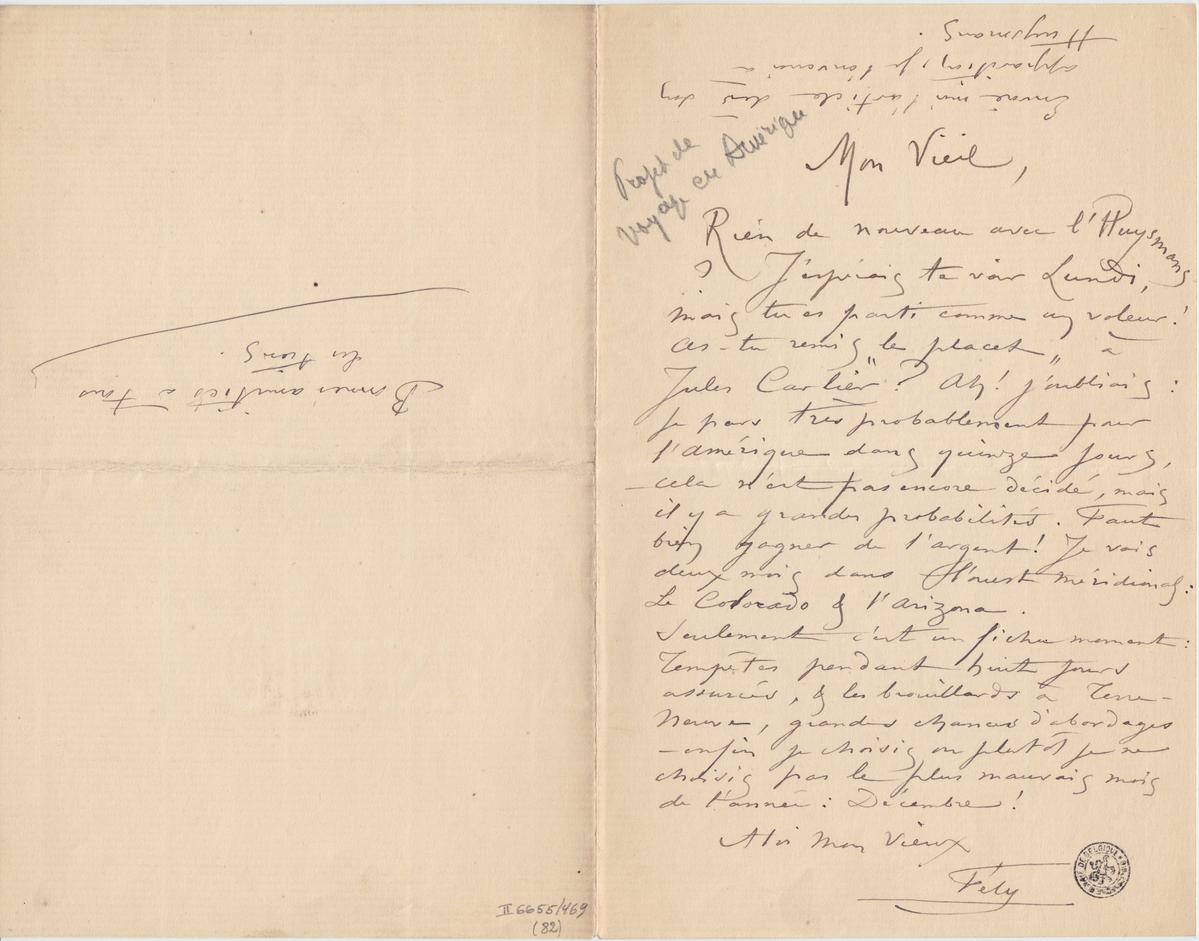 Envoie moi l'article dès son
apparition, je l'enverrai à
Huysmans.
Projet de
voyage en Amérique
Mon Vieil,
Rien de nouveau avec l'Huysmans
? J'espérais te voir Lundi,
mais tu es parti comme un voleur!
as-tu remis "le placet" à
Jules Carlier? Ah! j'oubliais:
Je pars très probablement pour
l'amérique dans quinze jours,
cela n'est pas encore décidé, mais
il y a grandes probabilités. Faut
bien gagner de l'argent! Je vais
deux mois dans l'ouest méridional:
Le Colorado & l'arizona.
Seulement c'est un fichu moment:
Tempêtes pendant huit jours
assurées, & les brouillards à Terre-
Neuve, grandes chances d'abordages
-enfin je choisis ou plutôt je ne
choisis pas le plus mauvais mois
de l'année: Décembre!
A toi mon vieux
Fély
Bonnes amitiés à tous
les trois.
II 6655/469
(82)